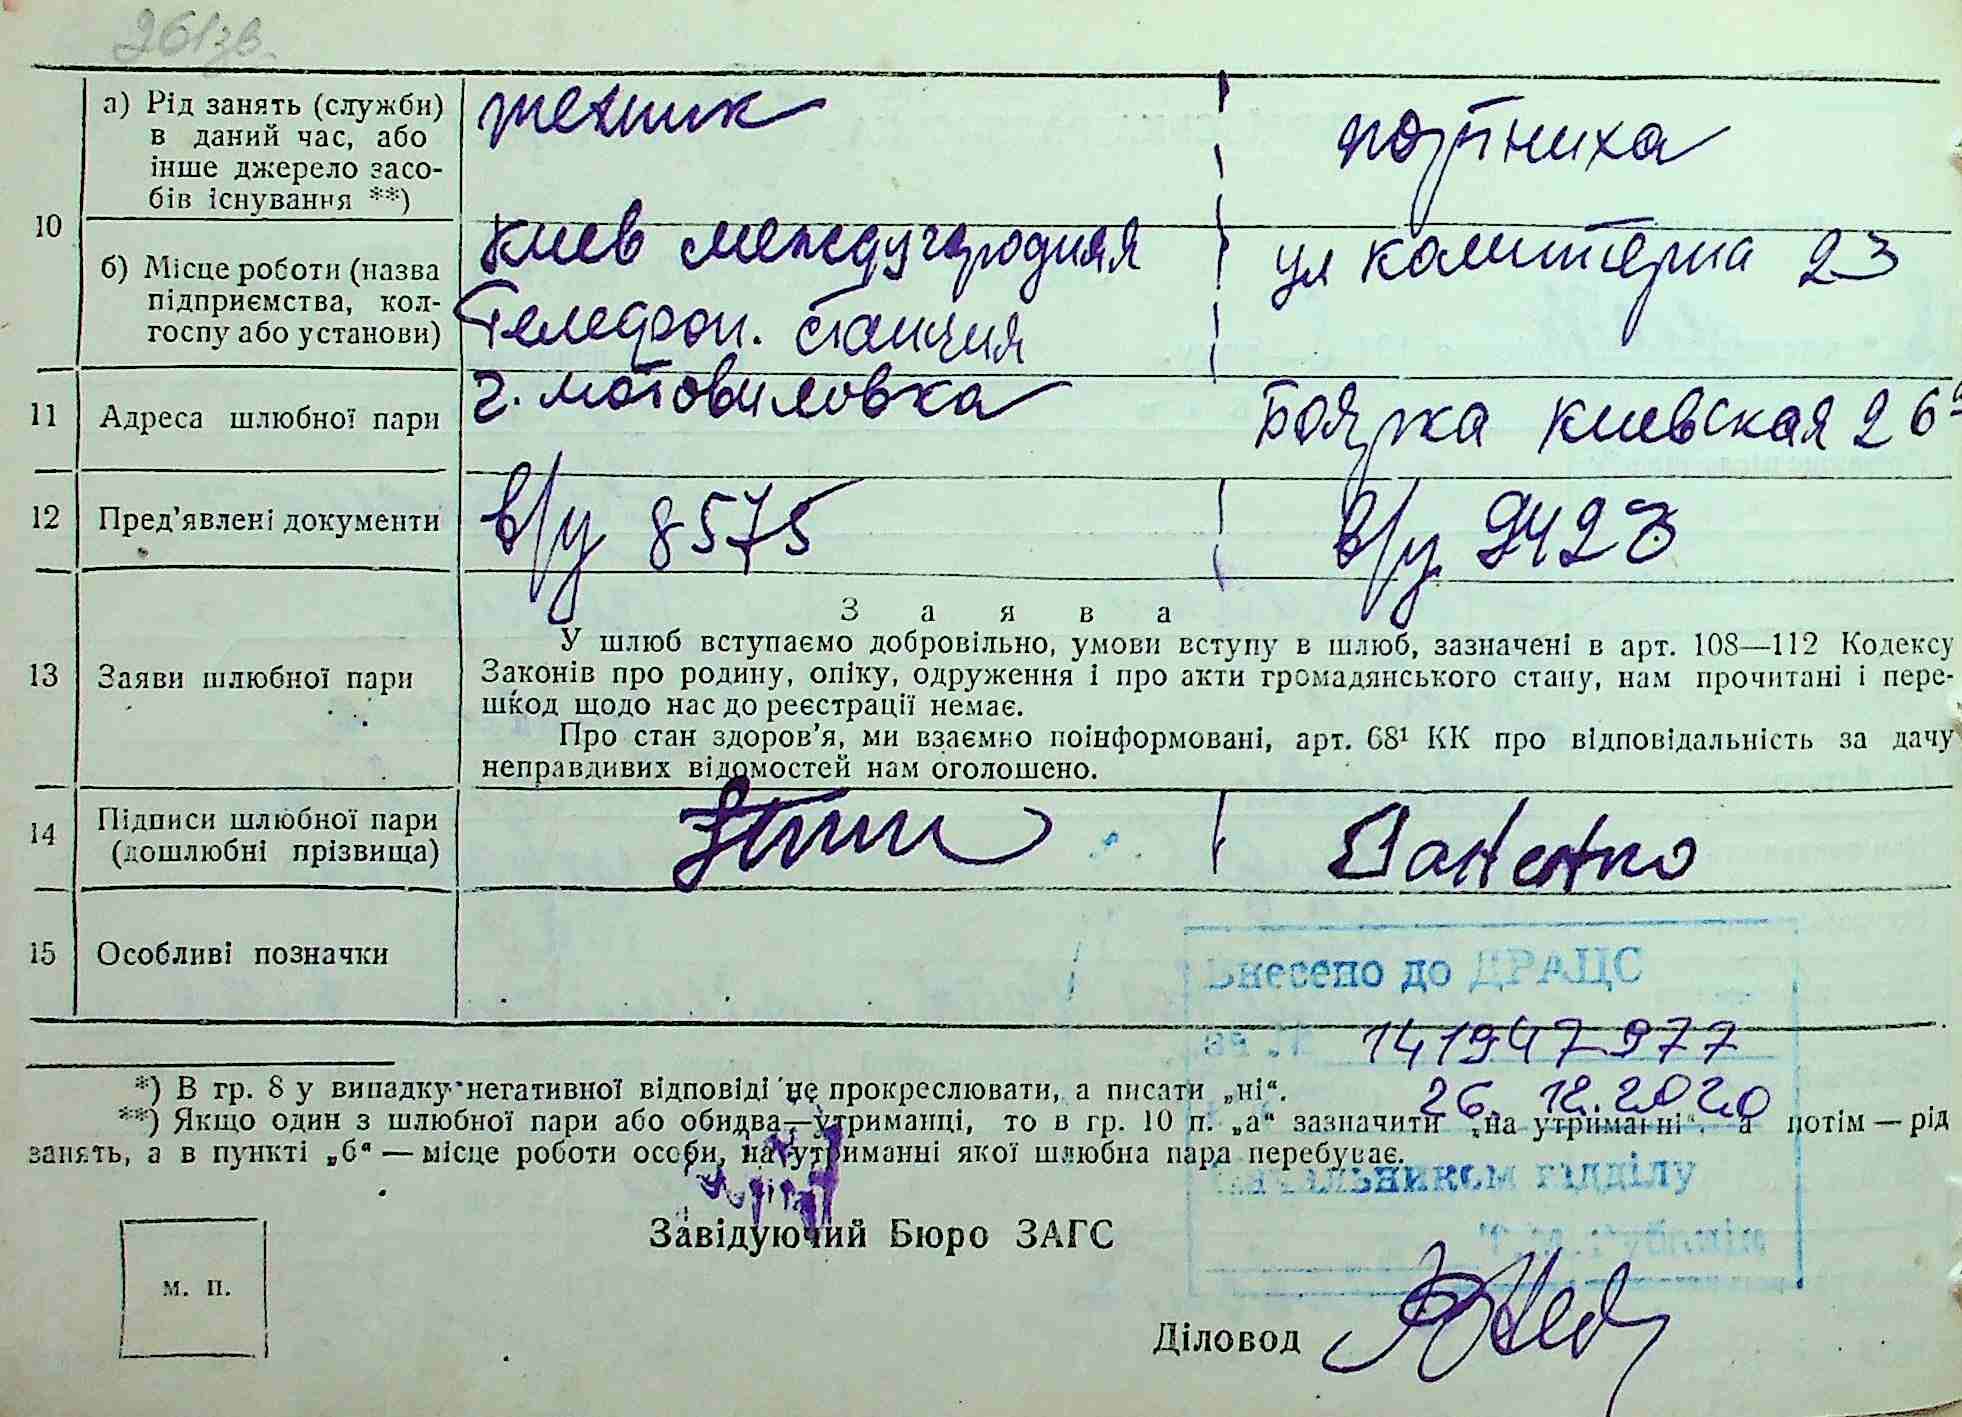 261зв.
10
а) Рід занять (служби)
в даний час, або
інше джерело засо-
бів існування **)
техник
портниха
б) Місце роботи (назва
підприємства, кол-
госпу або установи)
Киев междугородняя
Телефон. Станция
ул Коминтерна 23
11 Адреса шлюбної пари
г. мотовиловка
Боярка Киевская 26
12 Пред'явлені документи
в/у 8575
в/у 9423
13 Заяви шлюбної пари
Заява
У шлюб вступаємо добровільно, умови вступу в шлюб, зазначені в арт. 108—112 Кодексу
Законів про родину, опіку, одруження і про акти громадянського стану, нам прочитані і пере-
шкод щодо нас до реєстрації немає.
Про стан здоров'я, ми взаємно поінформовані, арт. 68¹ КК про відповідальність за дачу
неправдивих відомостей нам оголошено.
14 Підписи шлюбної пари
(дошлюбні прізвища)
15 Особливі позначки
Внесено до ДРАЦС
за № 141947977
*) В гр. 8 у випадку негативної відповіді не прокреслювати, а писати „ні“.
26.12.2020
**) Якщо один з шлюбної пари або обидва—утриманці, то в гр. 10 п. „а“ зазначити „на утриманні“, а потім — рід
занять, а в пункті „б“ — місце роботи особи, на утриманні якої шлюбна пара перебуває.
Начальником відділу
Завідуючий Бюро ЗАГС
м. п.
Діловод